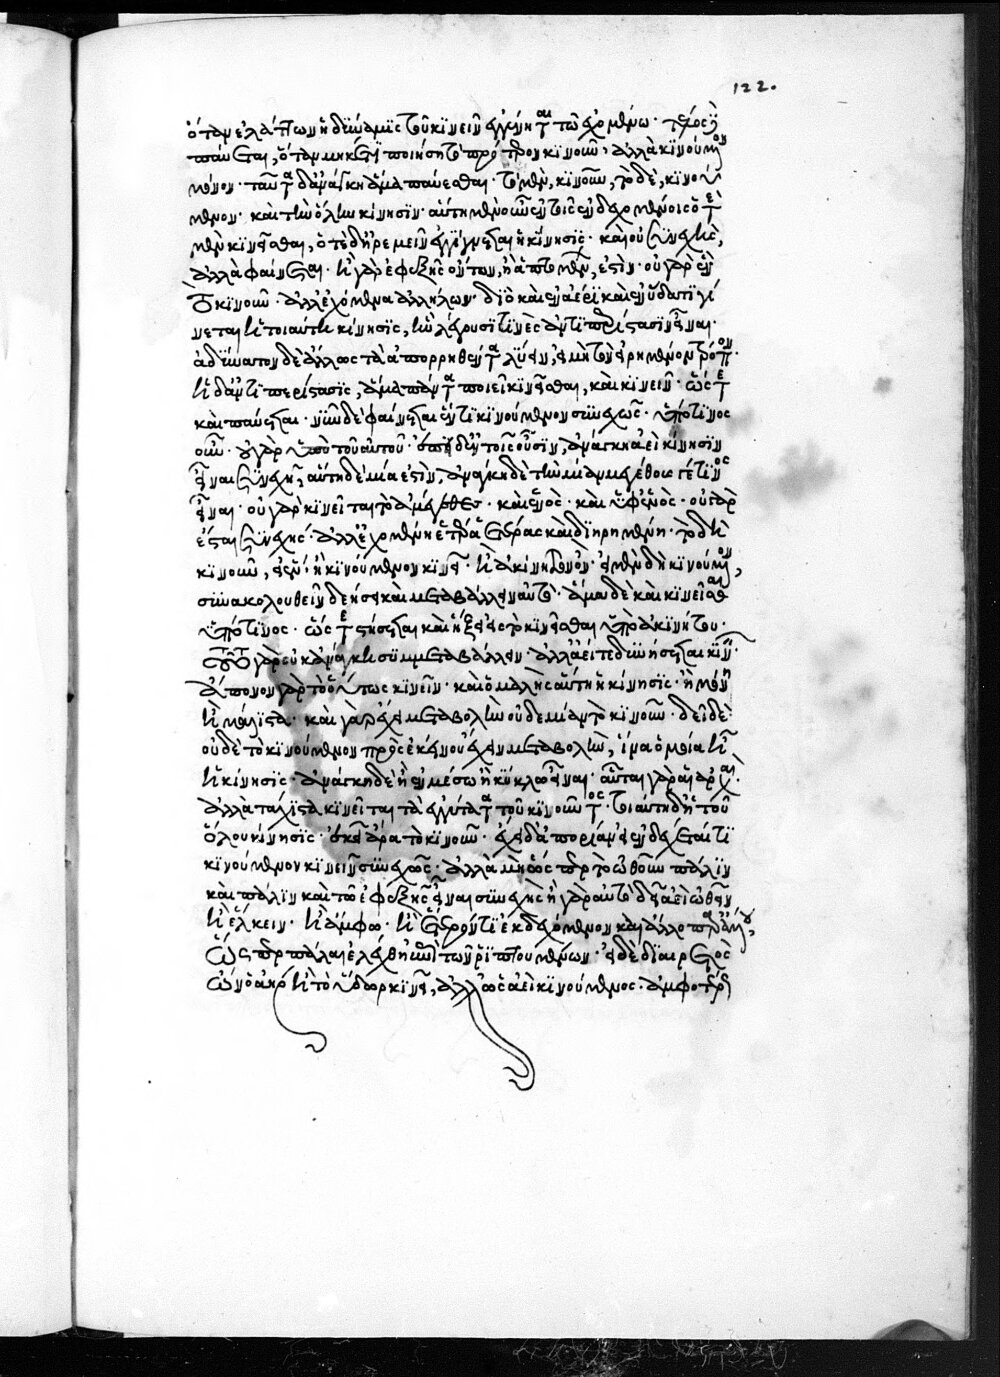 ὅταν ἐλάττων ἡ δύναμις τοῦ κινεῖν ἐγγίνηται τῷ ἐχομένῳ· τέλος δὲ
παύεται, ὅταν μηκέτι ποιήσῃ τὸ πρότερον κινοῦν, ἀλλὰ κινούμενον
μόνον· ταῦτα δ' ἀνάγκη ἅμα παύεσθαι· τὸ μὲν, κινοῦν, τὸ δὲ, κινού
μενον· καὶ τὴν ὅλην κίνησιν· αὕτη μὲν οὖν ἐν τοῖς ἐνδεχομένοις ὁτὲ
μὲν κινεῖσθαι, ὁτὲ δ' ἠρεμεῖν ἐγγίγνεται ἡ κίνησις· καὶ οὐ συνεχὴς,
ἀλλὰ φαίνεται· ἢ γὰρ ἐφεξῆς ὄντων, ἢ ἁπτομένων, ἐστίν· οὐ γὰρ ἓν
τὸ κινοῦν· ἀλλ' ἐχόμενα ἀλλήλων· διὸ καὶ ἐν ἀέρι καὶ ἐν ὕδατι γί
νεται ἡ τοιαύτη κίνησις, ἣν λέγουσί τινὲς ἀντιπερίστασιν εἶναι·
ἀδύνατον δὲ ἄλλως τὰ ἀπορρηθέντα λύειν, εἰ μὴ τὸν εἰρημένον τρόπον·
ἡ δ' ἀντιπερίστασις, ἅμα πάντα ποιεῖ κινεῖσθαι, καὶ κινεῖν· ὥστε
καὶ παύεσθαι· νῦν δὲ φαίνεται ἕν τι κινούμενον συνεχῶς· ὑπὸ τίνος
οὖν· οὐ γὰρ ὑπὸ τοῦ αὐτοῦ· ἐπεὶ δ' ἐν τοῖς οὖσιν, ἀνάγκη ἀεὶ κίνησιν
εἶναι συνεχῆ, αὕτη δὲ μία ἐστὶν, ἀνάγκη δὲ τὴν μίαν μεγέθους τέ τινος
εἶναι· οὐ γὰρ κινεῖται τὸ ἀμέγεθες· καὶ ἑνὸς· καὶ ὑφ' ἑνὸς· οὐ γὰρ
ἔσται συνεχής· ἀλλ' ἐχομένη ἑτέρα ἑτέρας καὶ διῃρημένη· τὸ δὴ
κινοῦν, εἰ ἕν· ἢ κινούμενον κινεῖ· ἢ ἀκίνητον ὄν· εἰ μὲν δὴ κινούμενον,
συνακολουθεῖν δεήσει καὶ μεταβάλλειν αὐτὸ· ἅμα δὲ καὶ κινεῖσθαι
ὑπό τινος· ὥστε στήσεται καὶ ἥξει εἰς τὸ κινεῖσθαι ὑπὸ ἀκινήτου·
τοῦτο γὰρ οὐκ ἀνάγκη συμμεταβάλλειν· ἀλλ' ἀεί τε δυνήσεται κινεῖν·
ἄπονον γὰρ τὸ οὕτως κινεῖν· καὶ ὁμαλὴς αὕτη ἡ κίνησις· ἢ μόνη
ἢ μάλιστα· οὐ γὰρ ἔχει μεταβολὴν οὐδεμίαν τὸ κινοῦν· δεῖ δὲ
οὐδὲ τὸ κινούμενον πρὸς ἐκεῖνο ἔχειν μεταβολὴν, ἵνα ὁμοία ᾖ
ἡ κίνησις· ἀνάγκη δὲ ἢ ἐν μέσῳ ἢ κύκλῳ εἶναι· αὗται γὰρ αἱ ἀρχαί·
ἀλλὰ τάχιστα κινεῖται τὰ ἐγγύτατα τοῦ κινοῦντος· τοιαύτη δ' ἡ τοῦ
ὅλου κίνησις· ἐκεῖ ἄρα τὸ κινοῦν· ἔχει δ' ἀπορίαν εἰ ἐνδέχεταί τι
κινούμενον κινεῖν συνεχῶς· ἀλλὰ μὴ ὥσπερ τὸ ὠθοῦν πάλιν
καὶ πάλιν καὶ τῷ ἐφεξῆς εἶναι συνεχὴς ἢ γὰρ αὐτὸ δεῖ ἀεὶ ὠθεῖν
ἢ ἕλκειν· ἢ ἄμφω· ἢ ἕτερόν τι ἐκδεχόμενον καὶ ἄλλο παρ' ἄλλου,
ὥσπερ πάλαι ἐλέχθη ἐπὶ τῶν ῥιπτουμένων· εἰ δὲ διαιρετὸς
ὢν ὁ ἀὴρ ἢ τὸ ὕδωρ κινεῖ, ἀλλ' ὡς ἀεὶ κινούμενος· ἀμφοτέρως